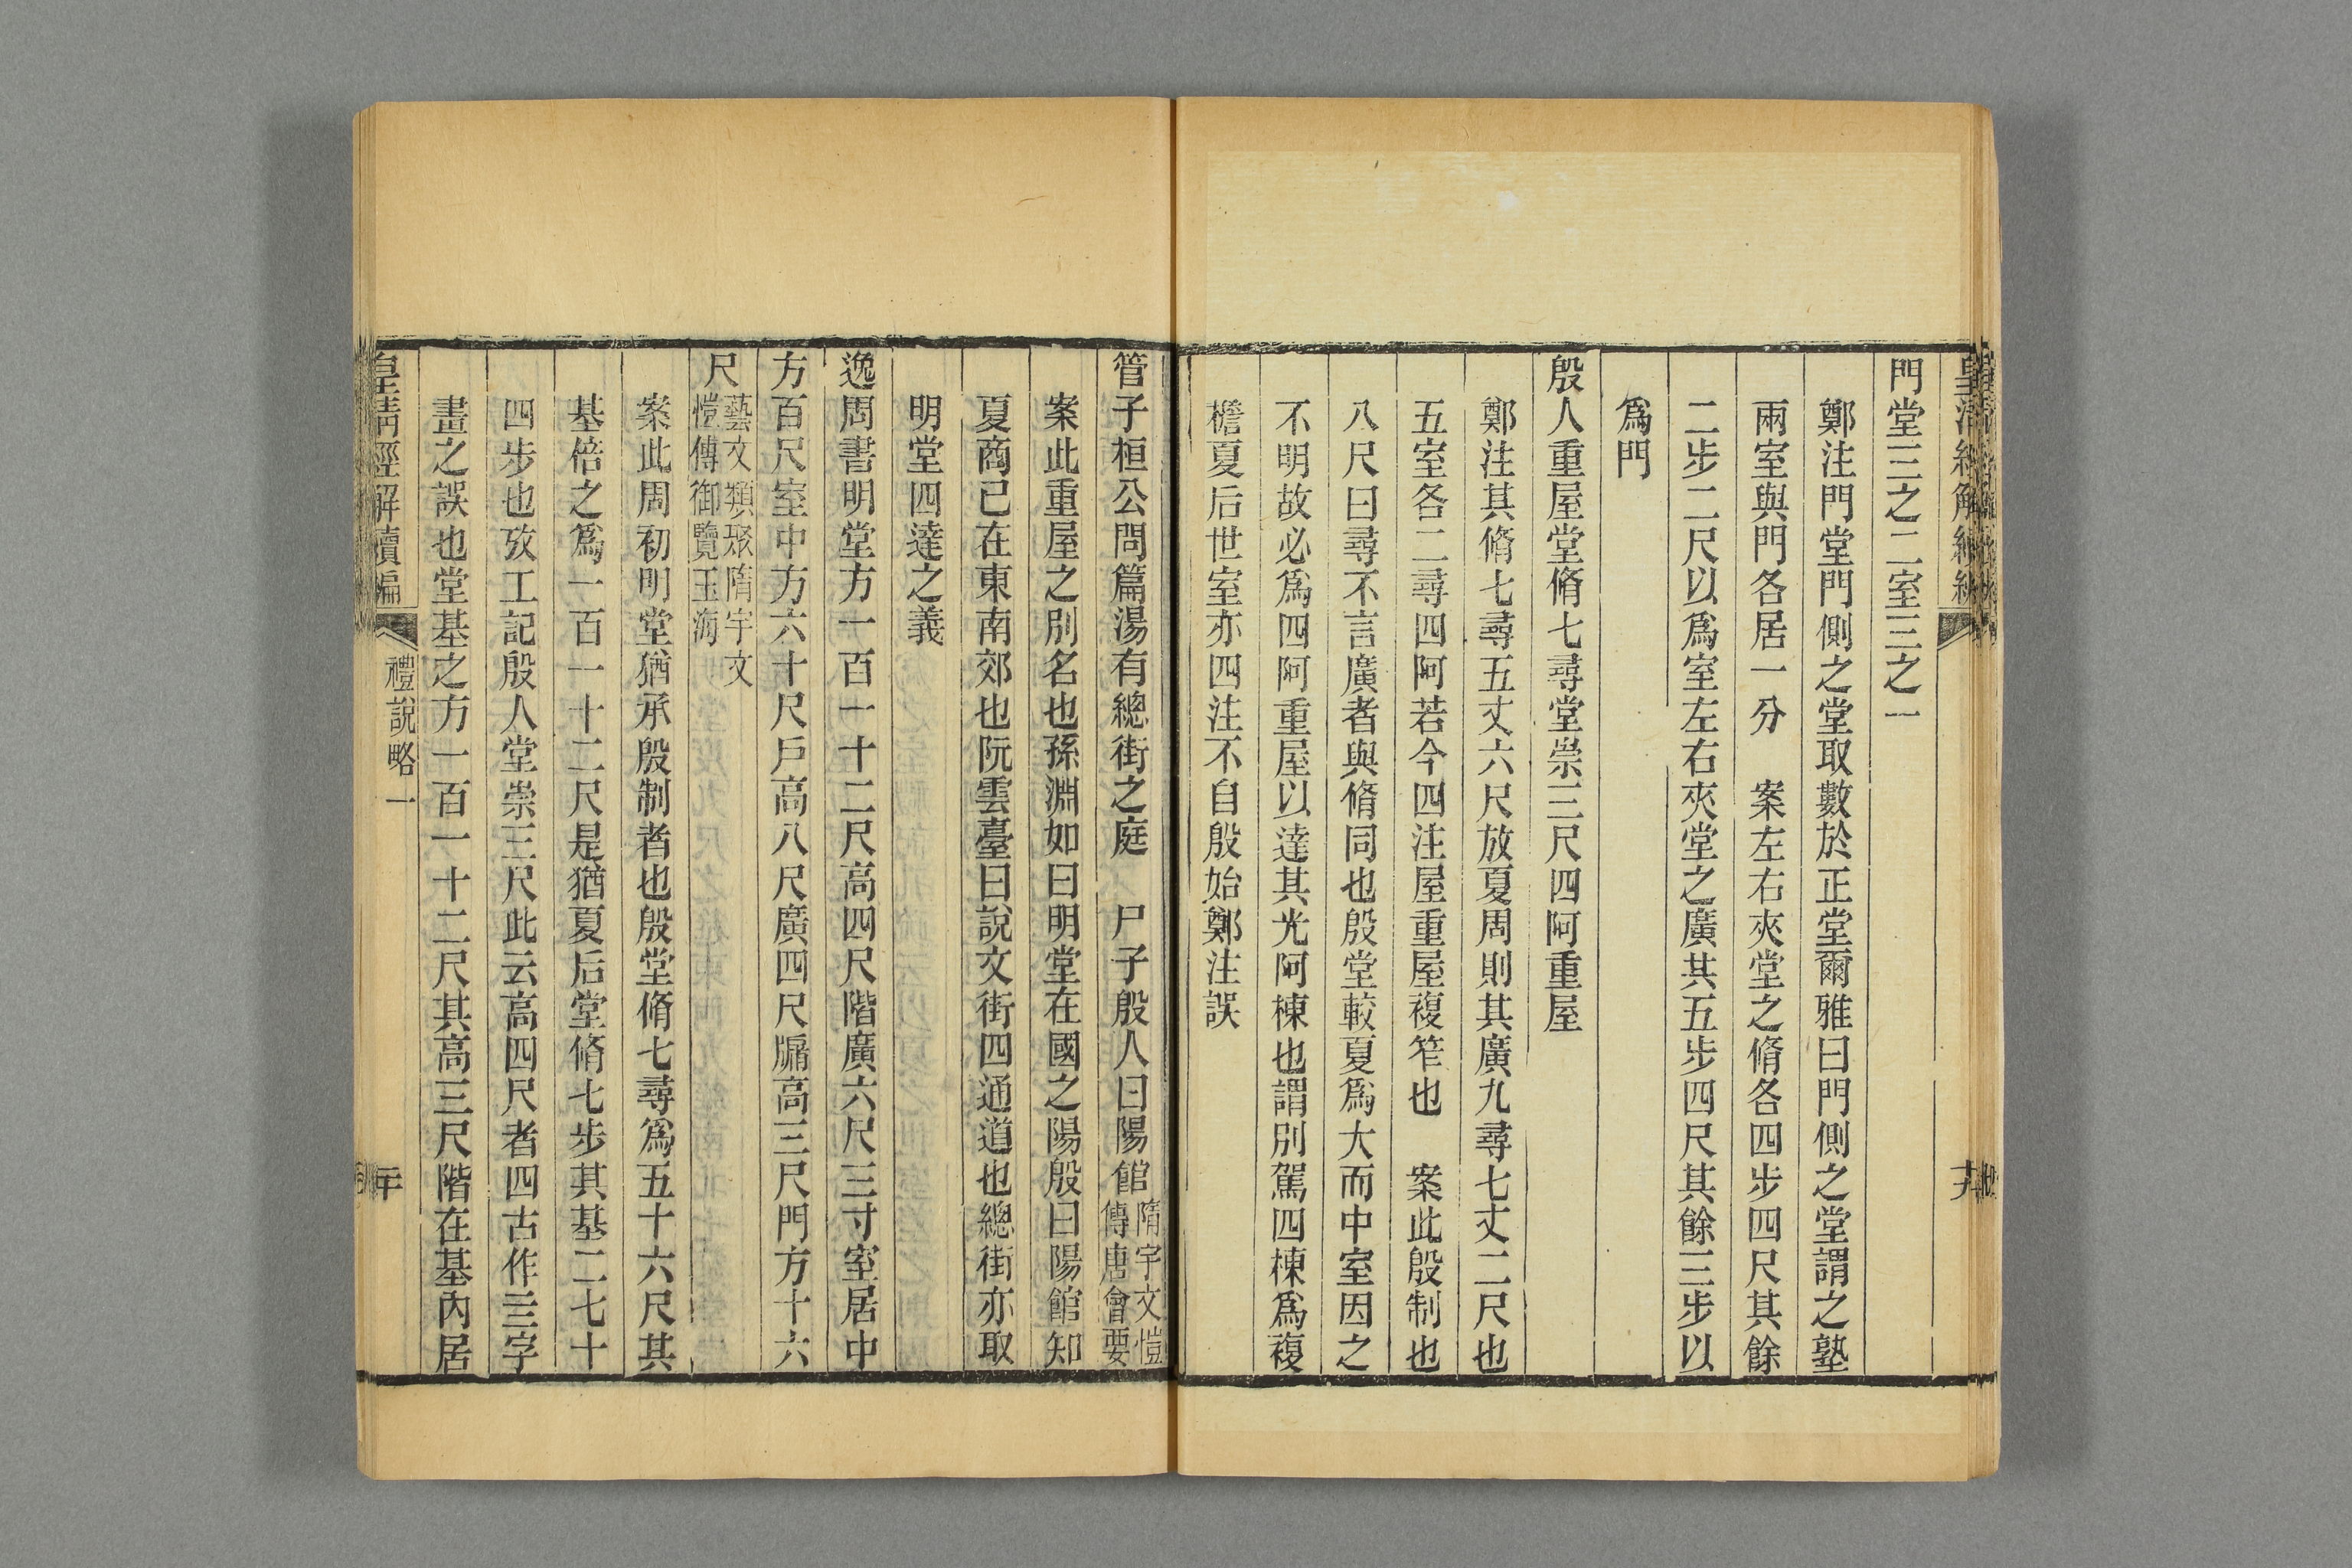 門堂三之二室三之一
鄭注門堂門側之堂取數於正堂爾雅曰門側之堂謂之塾
兩室與門各居一分　案左右夾堂之脩各四步四尺其餘
二步二尺以爲室左右夾堂之廣其五步四尺其餘三步以
爲門
殷人重屋堂脩七尋堂崇三尺四阿重屋
鄭注其脩七尋五丈六尺放夏周則其廣九尋七丈二尺也
五室各二尋四阿若今四注屋重屋複笮也　案此殷制也
八尺曰尋不言廣者與脩同也殷堂較夏爲大而中室因之
不明故必爲四阿重屋以達其光阿棟也謂別駕四棟爲複
檐夏后世室亦四注不自殷始鄭注誤
管子桓公問篇湯有總街之庭　尸子殷人曰陽館隋宇文愷傳唐會要
案此重屋之別名也孫淵如曰明堂在國之陽殷曰陽館知
夏商已在東南郊也阮雲臺曰說文街四通道也總街亦取
明堂四達之義
逸周書明堂方一百一十二尺高四尺階廣六尺三寸室居中
方百尺室中方六十尺戶高八尺廣四尺牖高三尺門方十六
尺藝文類聚隋宇文愷傳御覽玉海
案此周初明堂猶承殷制者也殷堂脩七尋爲五十六尺其
基倍之爲一百一十二尺是猶夏后堂脩七步其基二七十
四步也攷工記殷人堂崇三尺此云高四尺者四古作亖字
畫之誤也堂基之方一百一十二尺其高三尺階在基內居
皇清經解續編　禮說略一　二十